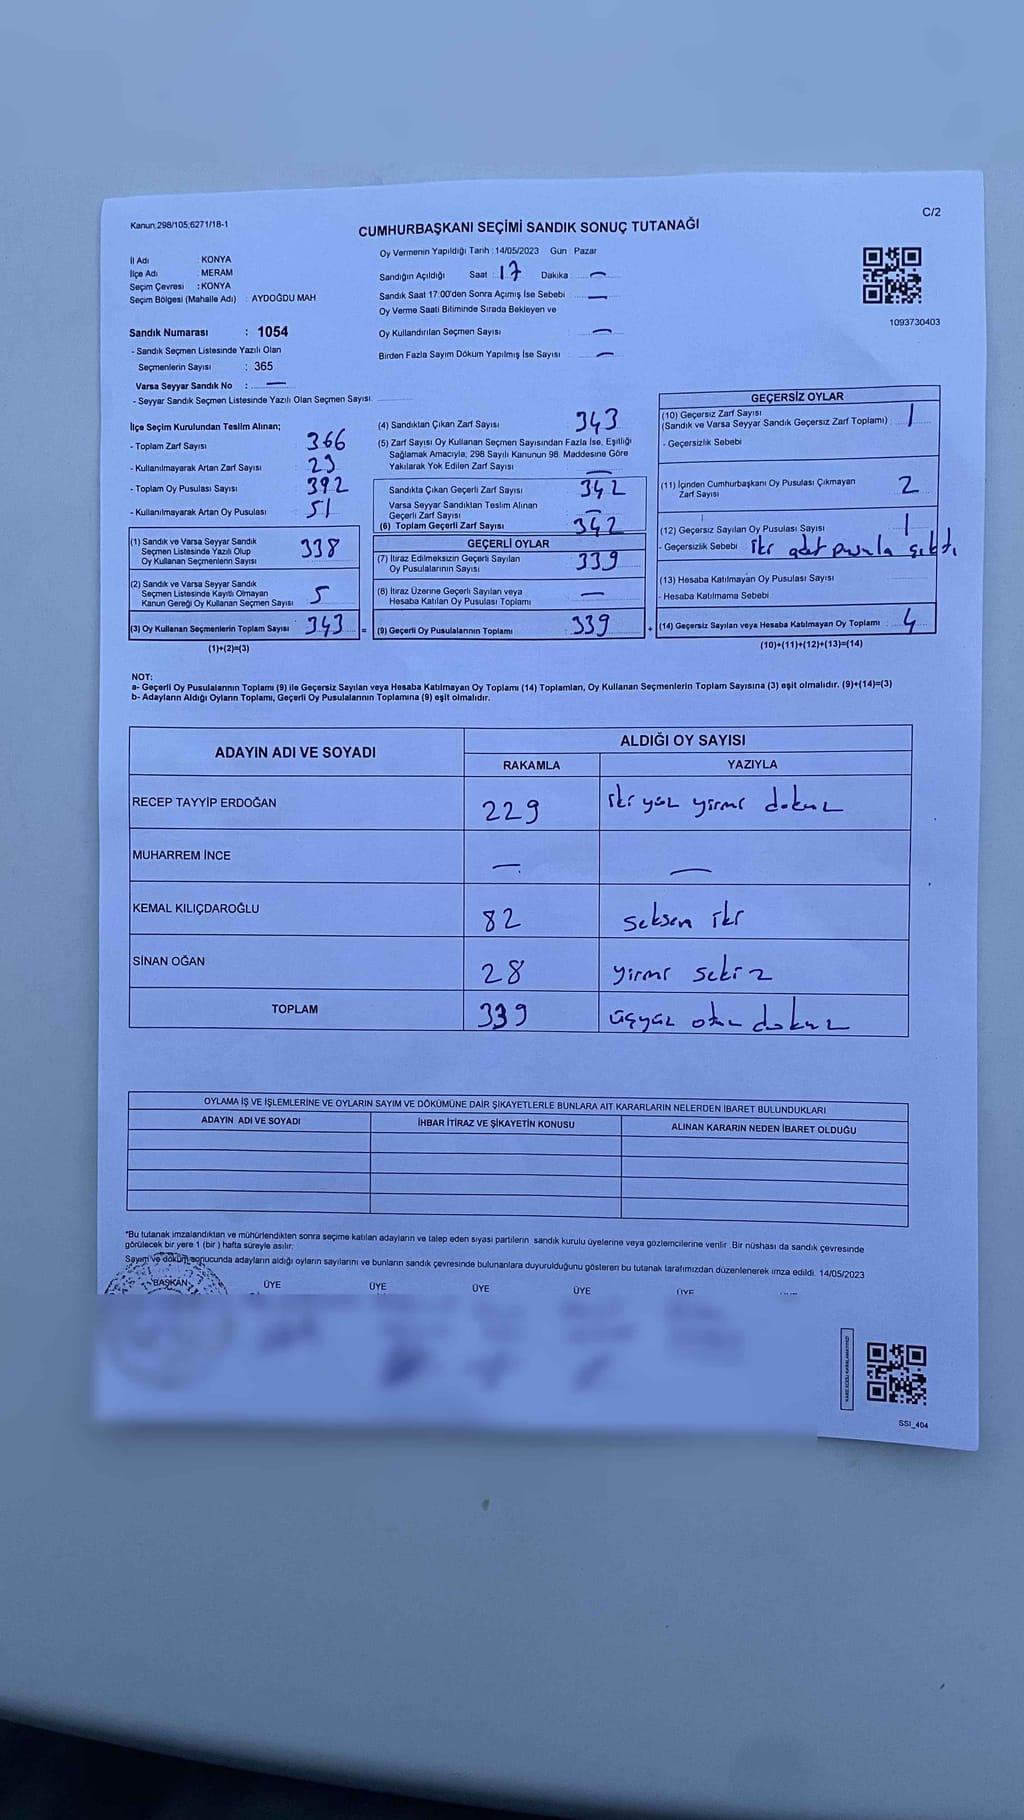 Kanun:298/105;6271/18-1
C/2
CUMHURBAŞKANI SEÇİMİ SANDIK SONUÇ TUTANAĞI
Oy Vermenin Yapıldığı Tarih : 14/05/2023 Gün : Pazar
İl Adı : KONYA
İlçe Adı : MERAM
Seçim Çevresi : KONYA
Seçim Bölgesi (Mahalle Adı) : AYDOĞDU MAH
Sandığın Açıldığı Saat : 17 Dakika : —
Sandık Saat 17:00'den Sonra Açımış İse Sebebi —
Oy Verme Saati Bitiminde Sırada Bekleyen ve
Oy Kullandırılan Seçmen Sayısı —
Birden Fazla Sayım Döküm Yapılmış İse Sayısı —
1093730403
Sandık Numarası : 1054
- Sandık Seçmen Listesinde Yazılı Olan
Seçmenlerin Sayısı : 365
Varsa Seyyar Sandık No : —
- Seyyar Sandık Seçmen Listesinde Yazılı Olan Seçmen Sayısı:
İlçe Seçim Kurulundan Teslim Alınan;
- Toplam Zarf Sayısı 366
- Kullanılmayarak Artan Zarf Sayısı 23
- Toplam Oy Pusulası Sayısı 392
- Kullanılmayarak Artan Oy Pusulası 51
(1) Sandık ve Varsa Seyyar Sandık
Seçmen Listesinde Yazılı Olup
Oy Kullanan Seçmenlerin Sayısı 338
(2) Sandık ve Varsa Seyyar Sandık
Seçmen Listesinde Kayıtlı Olmayan
Kanun Gereği Oy Kullanan Seçmen Sayısı 5
(3) Oy Kullanan Seçmenlerin Toplam Sayısı 343 =
(1)+(2)=(3)
(4) Sandıktan Çıkan Zarf Sayısı 343
(5) Zarf Sayısı Oy Kullanan Seçmen Sayısından Fazla İse, Eşitliği
Sağlamak Amacıyla, 298 Sayılı Kanunun 98. Maddesine Göre
Yakılarak Yok Edilen Zarf Sayısı —
Sandıkta Çıkan Geçerli Zarf Sayısı 342
Varsa Seyyar Sandıktan Teslim Alınan
Geçerli Zarf Sayısı —
(6) Toplam Geçerli Zarf Sayısı 342
GEÇERLİ OYLAR
(7) İtiraz Edilmeksizin Geçerli Sayılan
Oy Pusulalarının Sayısı 339
(8) İtiraz Üzerine Geçerli Sayılan veya
Hesaba Katılan Oy Pusulası Toplamı —
(9) Geçerli Oy Pusulalarının Toplamı 339 +
GEÇERSİZ OYLAR
(10) Geçersiz Zarf Sayısı
(Sandık ve Varsa Seyyar Sandık Geçersiz Zarf Toplamı) 1
- Geçersizlik Sebebi
(11) İçinden Cumhurbaşkanı Oy Pusulası Çıkmayan
Zarf Sayısı 2
(12) Geçersiz Sayılan Oy Pusulası Sayısı 1
- Geçersizlik Sebebi iki adet pusula çıktı
(13) Hesaba Katılmayan Oy Pusulası Sayısı
- Hesaba Katılmama Sebebi
(14) Geçersiz Sayılan veya Hesaba Katılmayan Oy Toplamı : 4
(10)+(11)+(12)+(13)=(14)
NOT:
a- Geçerli Oy Pusulalarının Toplamı (9) ile Geçersiz Sayılan veya Hesaba Katılmayan Oy Toplamı (14) Toplamları, Oy Kullanan Seçmenlerin Toplam Sayısına (3) eşit olmalıdır. (9)+(14)=(3)
b- Adayların Aldığı Oyların Toplamı, Geçerli Oy Pusulalarının Toplamına (9) eşit olmalıdır.
ADAYIN ADI VE SOYADI
ALDIĞI OY SAYISI
RAKAMLA YAZIYLA
RECEP TAYYİP ERDOĞAN 229 iki yüz yirmi dokuz
MUHARREM İNCE — —
KEMAL KILIÇDAROĞLU 82 seksen iki
SİNAN OĞAN 28 yirmi sekiz
TOPLAM 339 üçyüz otuz dokuz
OYLAMA İŞ VE İŞLEMLERİNE VE OYLARIN SAYIM VE DÖKÜMÜNE DAİR ŞİKAYETLERLE BUNLARA AİT KARARLARIN NELERDEN İBARET BULUNDUKLARI
ADAYIN ADI VE SOYADI İHBAR İTİRAZ VE ŞİKAYETİN KONUSU ALINAN KARARIN NEDEN İBARET OLDUĞU
*Bu tutanak imzalandıktan ve mühürlendikten sonra seçime katılan adayların ve talep eden siyasi partilerin sandık kurulu üyelerine veya gözlemcilerine verilir. Bir nüshası da sandık çevresinde
görülecek bir yere 1 (bir) hafta süreyle asılır.
Sayım ve döküm sonucunda adayların aldığı oyların sayılarını ve bunların sandık çevresinde bulunanlara duyurulduğunu gösteren bu tutanak tarafımızdan düzenlenerek imza edildi. 14/05/2023
BAŞKAN ÜYE ÜYE ÜYE ÜYE ÜYE
SSI_404